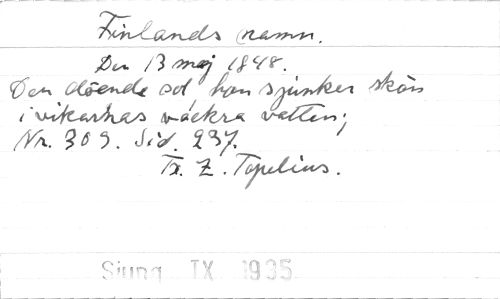 Finlands namn.
Den 13 maj 1848.
Den döende sol, han sjunker skön
i vikarnas vackra vatten;
Nr. 309. Sid. 237.
Tx. Z. Topelius.
Sjung IX 1935